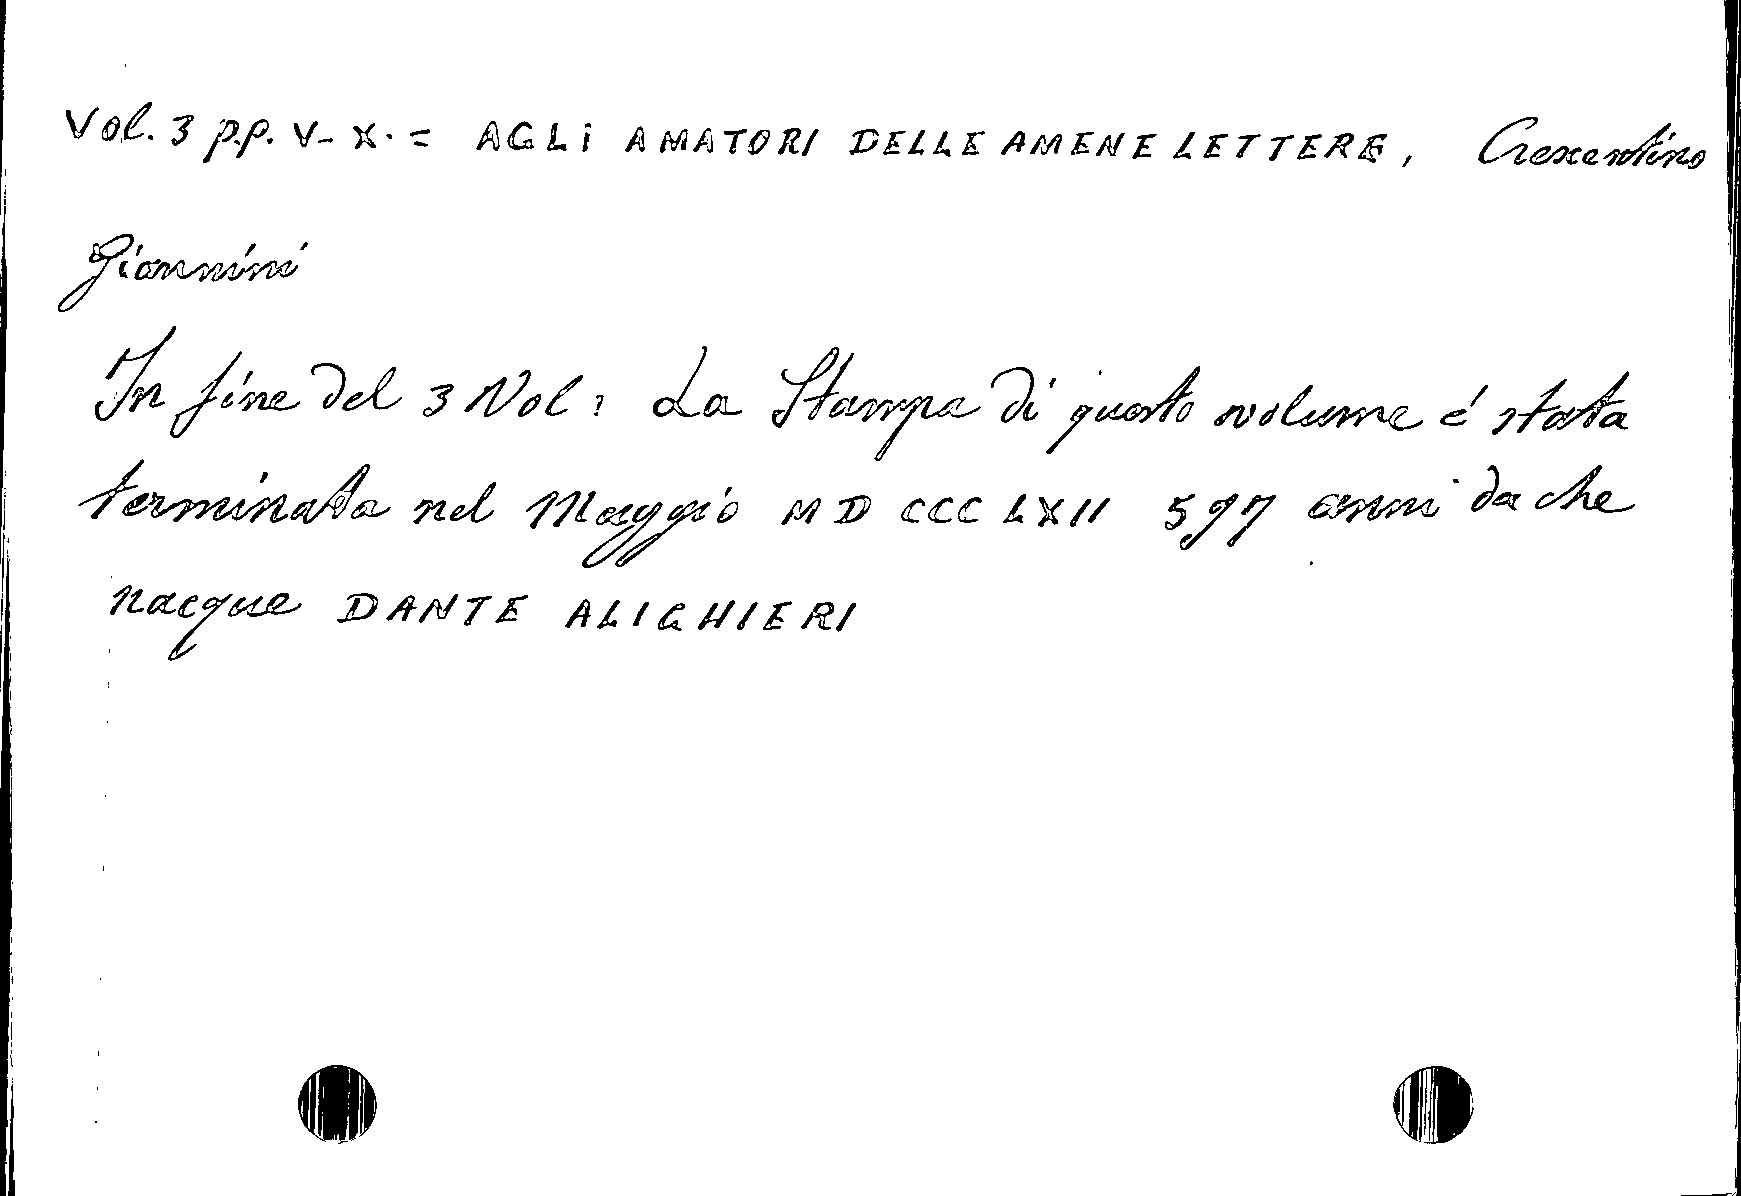 Vol. 3 p.p. V-X. = AGLI AMATORI DELLE AMENE LETTERE, Crescentino
Giannini
In fine del 3 Vol: La Stampa di questo volume é stata
terminata nel Maggio MDCCCLXII 597 anni da che
nacque DANTE ALIGHIERI